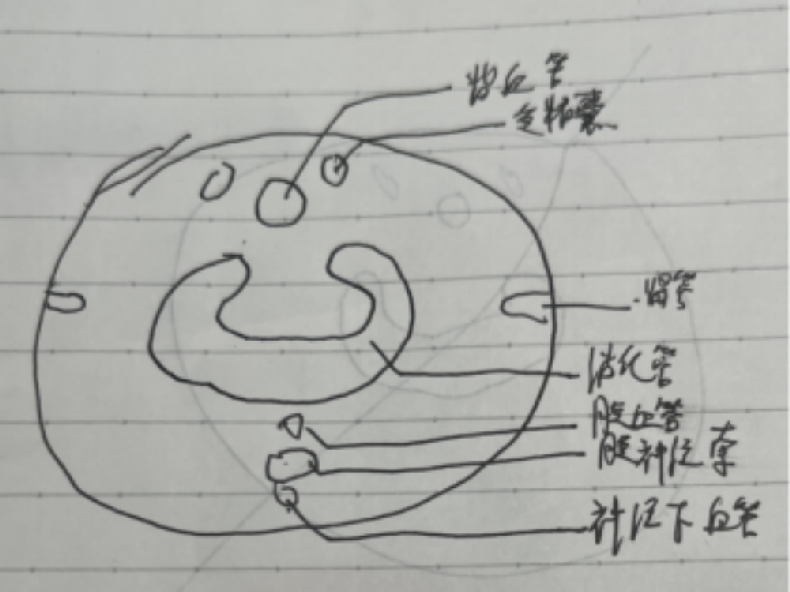 背血管
受精囊
肾管
消化管
腹血管
腹神经索
神经下血管